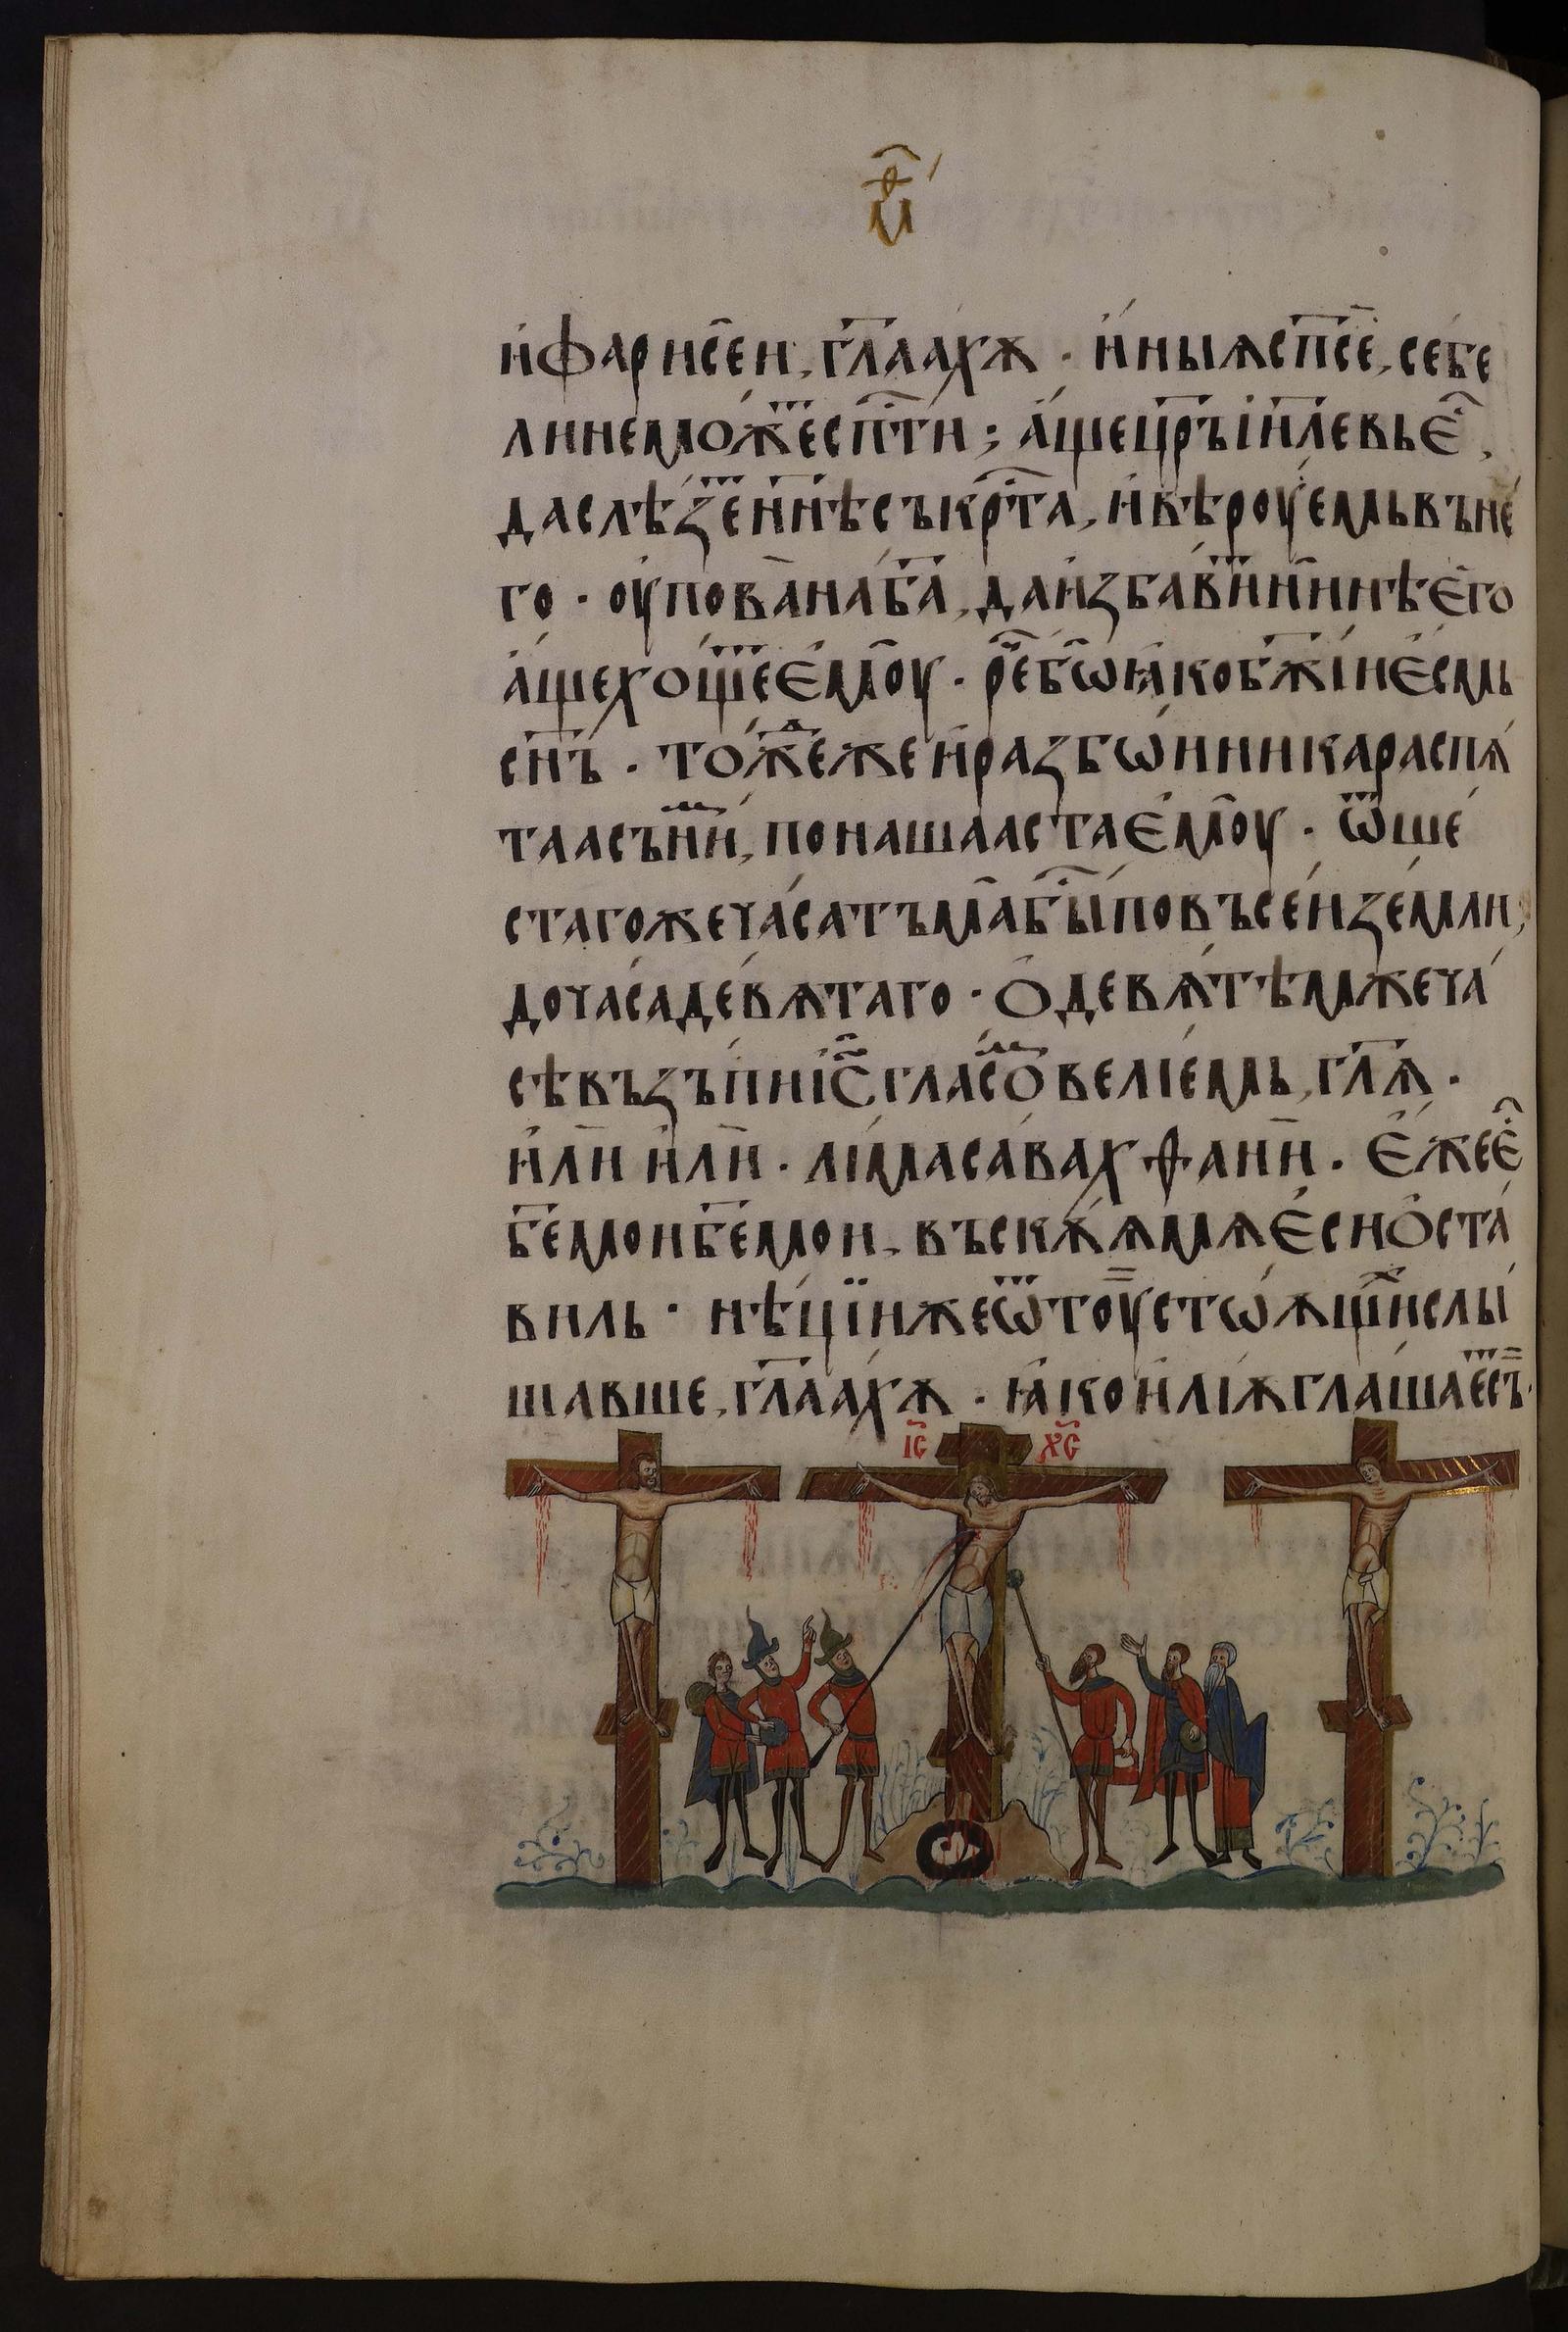 и҆фарисе҆и, гл҃аахѫ · и҆ны́ѧсп҃се, се́бе
линемо́жⷮеспⷭ҇ти ; а҆́щецр҃ъі҆ил҃евье҆ⷭ҇,
даслѣ́зеⷮнн҃ѣсъкрⷭ҇та, и҆вѣ́роуемьвъне́
го · оу҆пованаба҃, даи҆збавиⷮнн҃ѣе҆го
а҆́щехо́щеⷮе҆моу · реⷱ҇боѡ҆ꙗ҆кобж҃іи҆е҆смь
сн҃ъ · то́жⷣежеи҆разбѡ́йникараспѧ́
таасъниⷨ, понашаастае҆моу · ѿше́
стагожеча́сатъмабⷭ҇ы́повъсе́йземли,
доча́садевѧ́таго · О҆девѧ́тѣмжеча́
сѣвъзъпиі҆с҃гла́соⷨвелі́емь, гл҃ѧ ·
и҆ли и҆ли · ліма́сава́хѳани · Е҆́жее҆ⷭ҇
бе҃мойбе҃мой, въскѫ́ѧмѧе҆сиО҆ста́
виль · нѣ́ційжеѿтоустѡ́ѧщиⷯслы́
шавше, гл҃аахѫ · ꙗ҆кои҆лі́ѫглаша́еⷮсъ ·
і҆с҃ хс҃